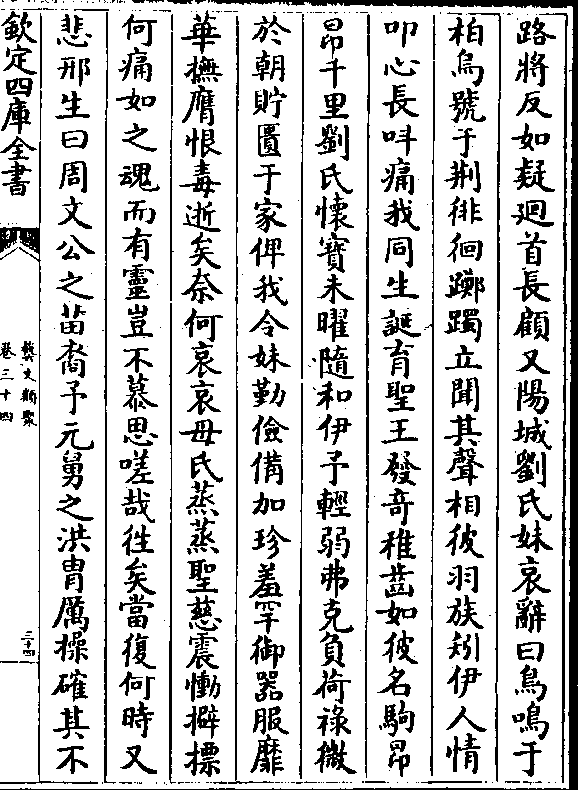 路將反如疑廻首長顧又陽城劉氏妹哀辭曰鳥鳴于
柏烏號于荆徘徊躑躅立聞其聲相彼羽族矧伊人情
叩心長呌痛我同生誕育聖王發奇稚齒如彼名駒昂
昂千里劉氏懷寶未曜隨和伊予輕弱弗克負荷祿微
於朝貯匱于家俾我令妹勤儉備加珍羞罕御器服靡
華撫膺恨毒逝矣奈何哀哀母氏蒸蒸聖慈震慟擗摽
何痛如之魂而有靈豈不慕思嗟哉徃矣當復何時又
悲邢生曰周文公之苗裔予元舅之洪胄厲操確其不
欽定四庫全書
藝文類聚
卷三十四
三十四